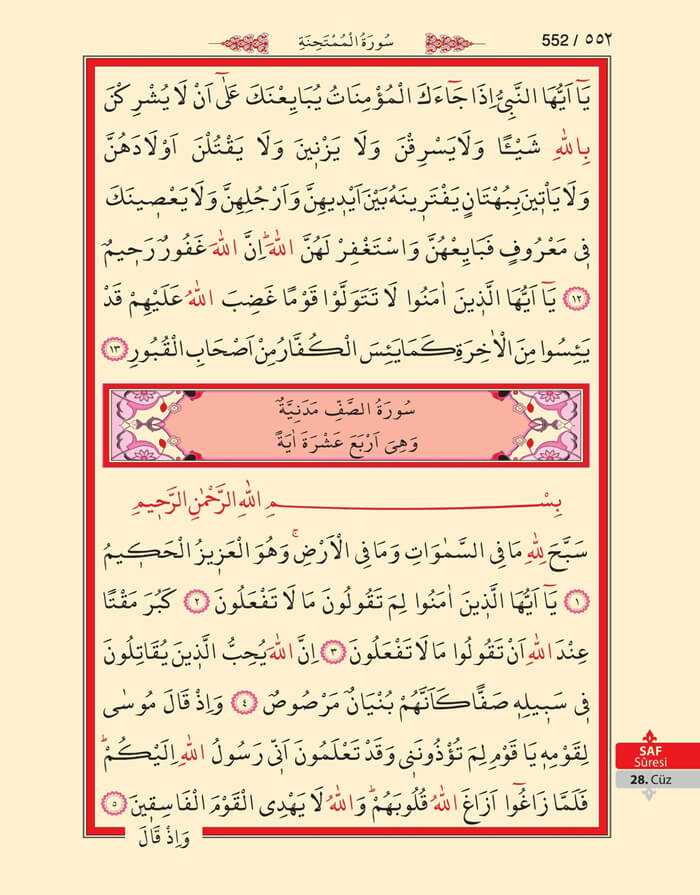 سُورَةُ الْمُمْتَحِنَةِ
552 / ٥٥٢
يَٓا اَيُّهَا النَّبِيُّ اِذَا جَٓاءَكَ الْمُؤْمِنَاتُ يُبَايِعْنَكَ عَلٰٓى اَنْ لَا يُشْرِكْنَ
بِاللّٰهِ شَيْـًٔا وَلَا يَسْرِقْنَ وَلَا يَزْن۪ينَ وَلَا يَقْتُلْنَ اَوْلَادَهُنَّ
وَلَا يَأْت۪ينَ بِبُهْتَانٍ يَفْتَر۪ينَهُ بَيْنَ اَيْد۪يهِنَّ وَاَرْجُلِهِنَّ وَلَا يَعْص۪ينَكَ
ف۪ي مَعْرُوفٍ فَبَايِعْهُنَّ وَاسْتَغْفِرْ لَهُنَّ اللّٰهَۜ اِنَّ اللّٰهَ غَفُورٌ رَح۪يمٌ
﴿١٢﴾ يَٓا اَيُّهَا الَّذ۪ينَ اٰمَنُوا لَا تَتَوَلَّوْا قَوْمًا غَضِبَ اللّٰهُ عَلَيْهِمْ قَدْ
يَئِسُوا مِنَ الْاٰخِرَةِ كَمَا يَئِسَ الْكُفَّارُ مِنْ اَصْحَابِ الْقُبُورِ ﴿١٣﴾
سُورَةُ الصَّفِّ مَدَنِيَّةٌ
وَهِيَ اَرْبَعَ عَشْرَةَ اٰيَةً
بِسْــــــــــــــــــمِ اللّٰهِ الرَّحْمٰنِ الرَّح۪يمِ
سَبَّحَ لِلّٰهِ مَا فِي السَّمٰوَاتِ وَمَا فِي الْاَرْضِۚ وَهُوَ الْعَز۪يزُ الْحَك۪يمُ
﴿١﴾ يَٓا اَيُّهَا الَّذ۪ينَ اٰمَنُوا لِمَ تَقُولُونَ مَا لَا تَفْعَلُونَ ﴿٢﴾ كَبُرَ مَقْتًا
عِنْدَ اللّٰهِ اَنْ تَقُولُوا مَا لَا تَفْعَلُونَ ﴿٣﴾ اِنَّ اللّٰهَ يُحِبُّ الَّذ۪ينَ يُقَاتِلُونَ
ف۪ي سَب۪يلِه۪ صَفًّا كَاَنَّهُمْ بُنْيَانٌ مَرْصُوصٌ ﴿٤﴾ وَاِذْ قَالَ مُوسٰى
لِقَوْمِه۪ يَا قَوْمِ لِمَ تُؤْذُونَن۪ي وَقَدْ تَعْلَمُونَ اَنّ۪ي رَسُولُ اللّٰهِ اِلَيْكُمْۜ
فَلَمَّا زَاغُٓوا اَزَاغَ اللّٰهُ قُلُوبَهُمْۜ وَاللّٰهُ لَا يَهْدِي الْقَوْمَ الْفَاسِق۪ينَ ﴿٥﴾
وَاِذْ قَالَ
SAF
Sûresi
28. Cüz